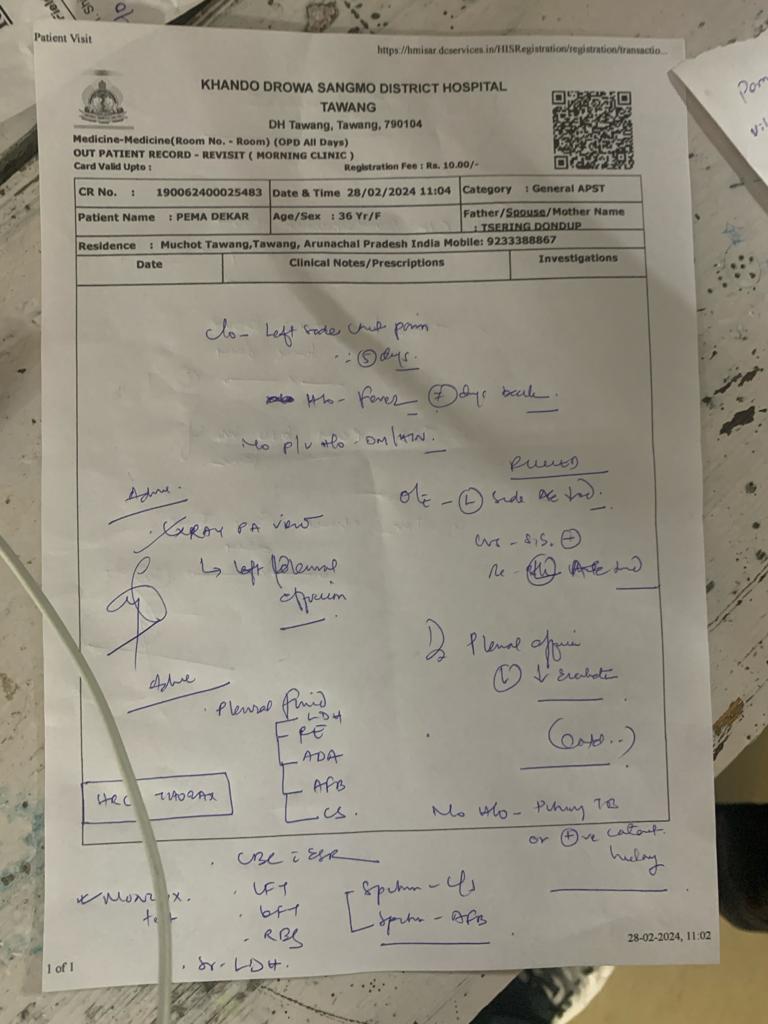 Patient Visit
https://hmisar.dcservices.in/HISRegistration/registration/transactio...
KHANDO DROWA SANGMO DISTRICT HOSPITAL
TAWANG
DH Tawang, Tawang, 790104
Medicine-Medicine(Room No. - Room) (OPD All Days)
OUT PATIENT RECORD - REVISIT ( MORNING CLINIC )
Card Valid Upto : Registration Fee : Rs. 10.00/-
CR No. : 190062400025483 Date & Time 28/02/2024 11:04 Category : General APST
Patient Name : PEMA DEKAR Age/Sex : 36 Yr/F Father/Spouse/Mother Name : TSERING DONDUP
Residence : Muchot Tawang,Tawang, Arunachal Pradesh India Mobile: 9233388867
Date Clinical Notes/Prescriptions Investigations
c/o - Left side chest pain
5 days.
H/o - Fever 7 days back.
No P/v H/o - DM/HTN.
O/E - L side AE
Advice.
XRAY PA VIEW
↳ left pleural
effusion
CVS - S1S2 +
D Pleural effusion
L ↓ Evaluation
Advice
Pleural fluid
LDH
RE
ADA
AFB
CS.
HRCT THORAX
No H/o - Pulmonary TB
or +ve contact
history
CBC c ESR
Montoux.
test
LFT
RBS
Sr. LDH.
Sputum - C/S
Sputum - AFB
28-02-2024, 11:02
1 of 1